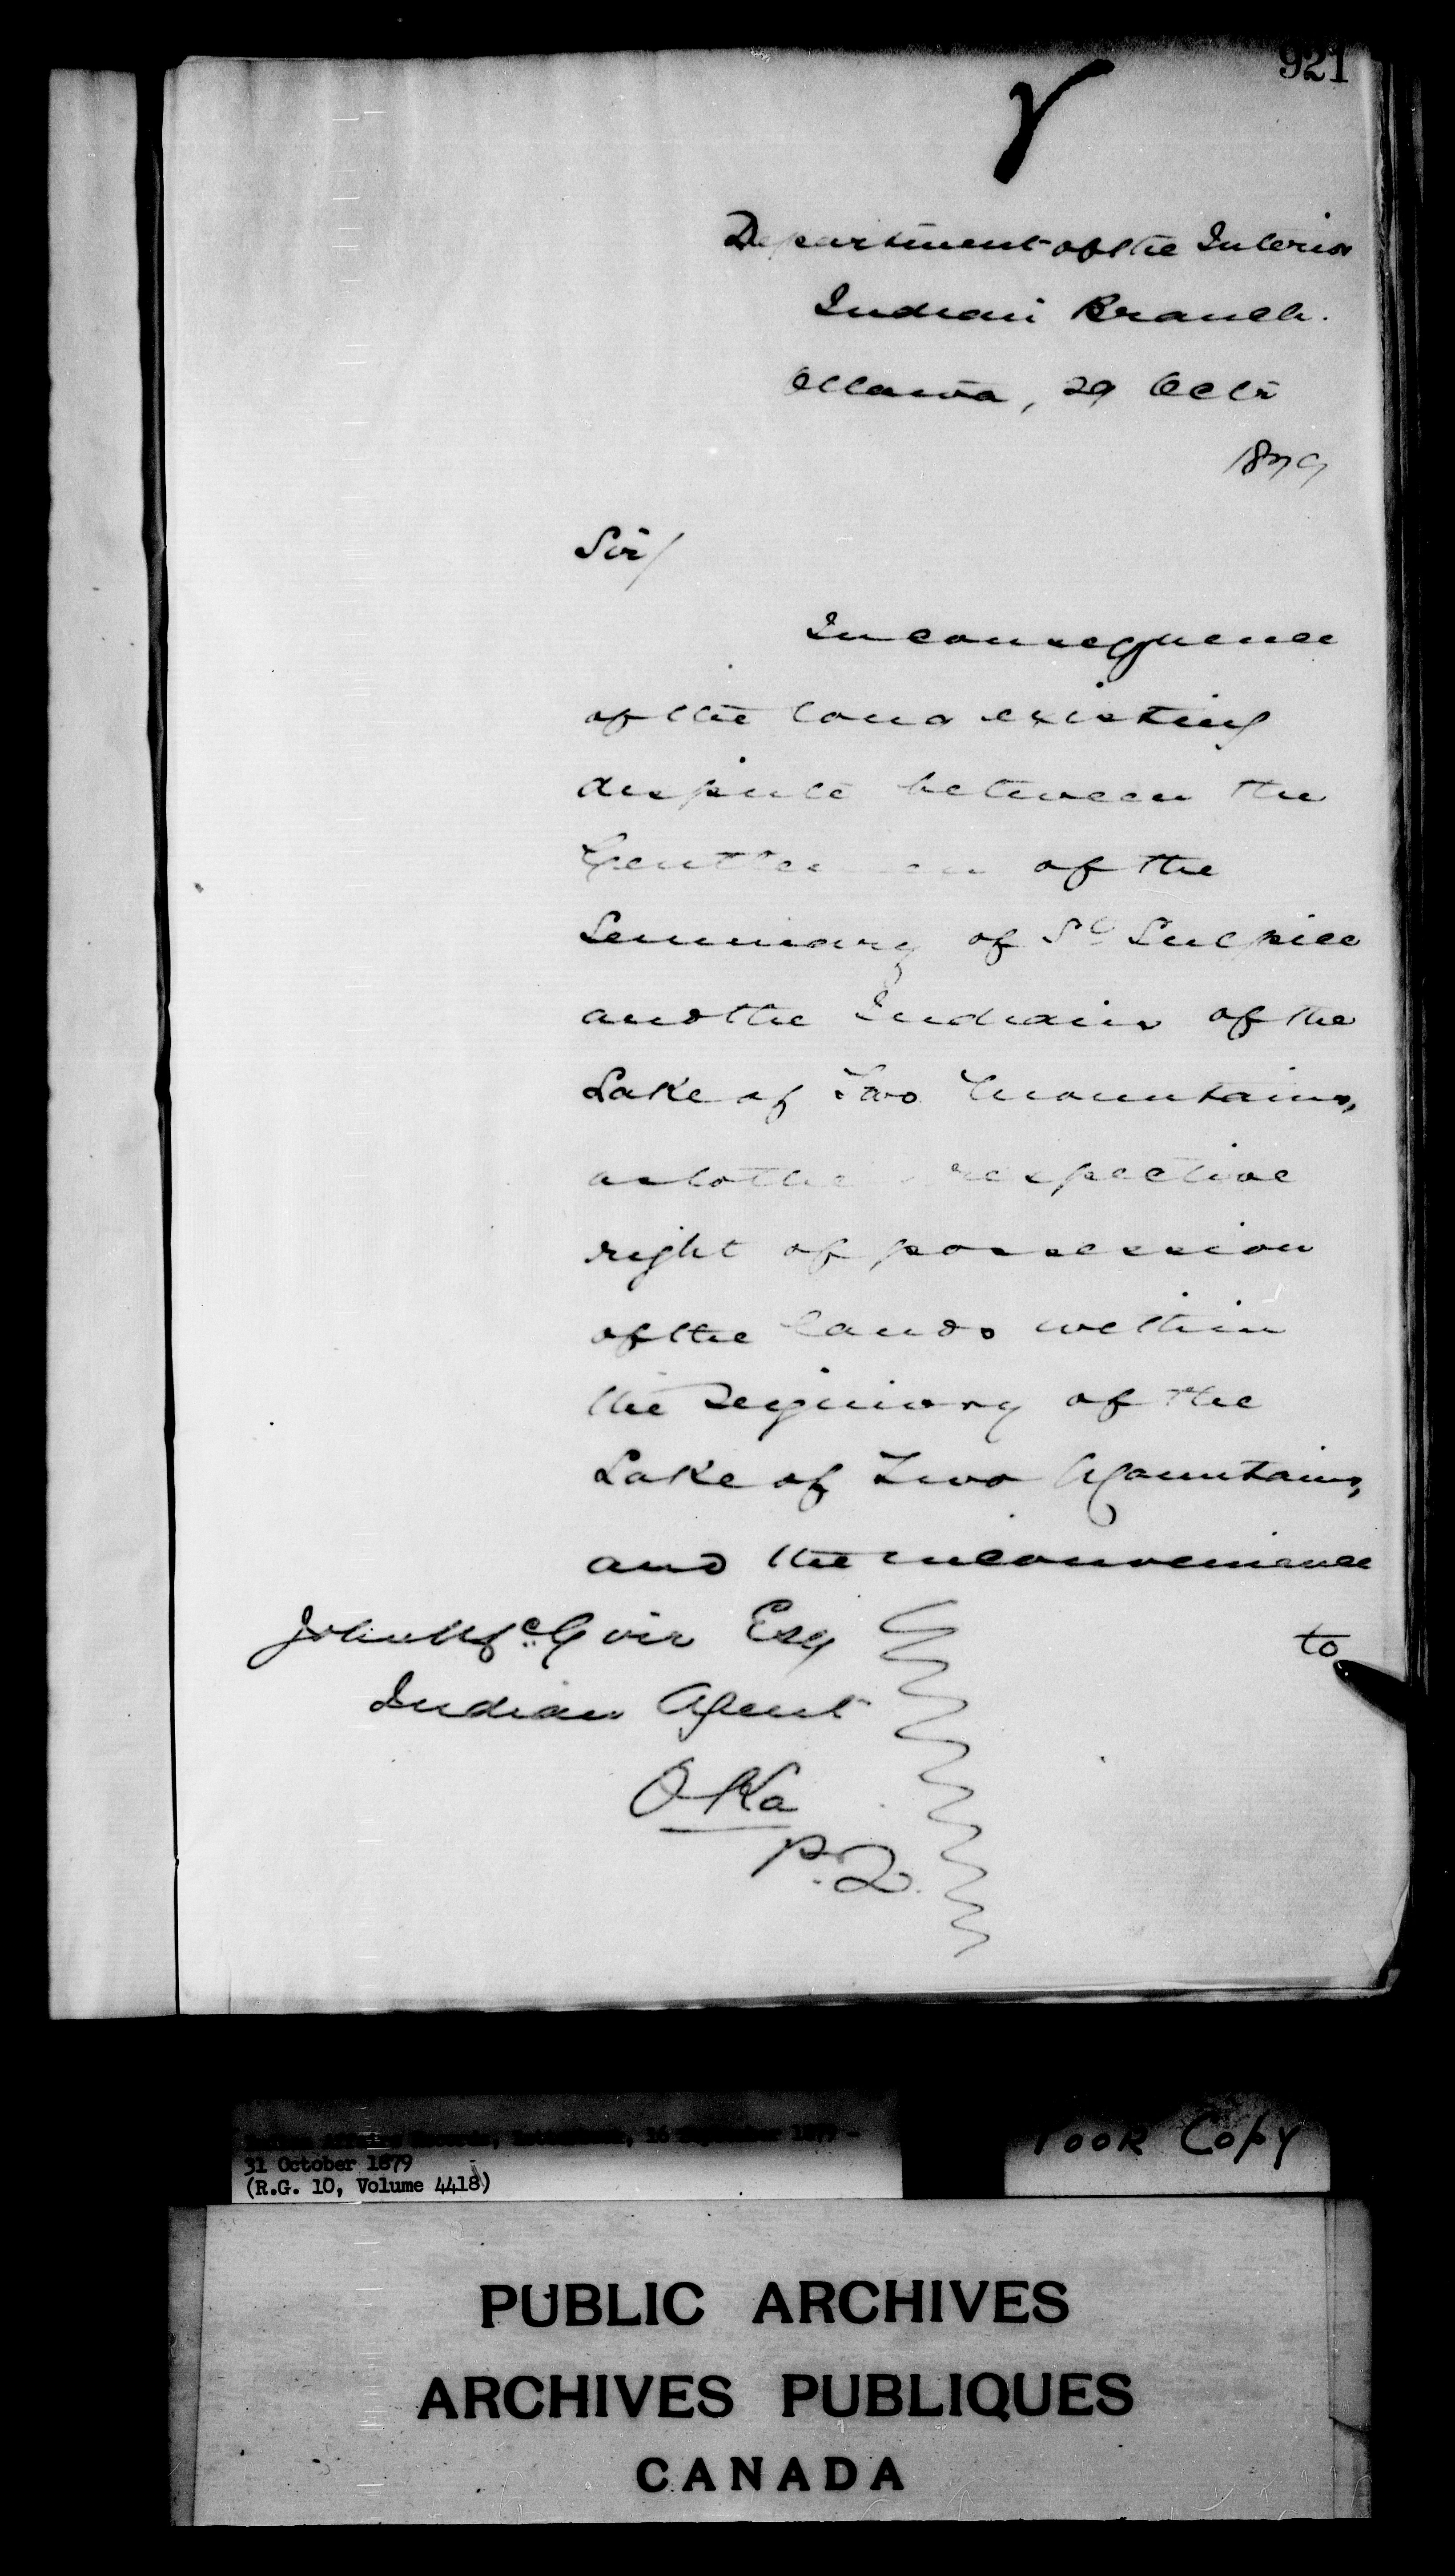 921
Department of the Interior
Indian Branch.
Ottawa, 29 Octr
1879
Sir/
In consequence
of the long existing
dispute between the
Gentlemen of the
Seminary of St Sulpice
and the Indians of the
Lake of Two Mountains,
as to the respective
right of possession
of the lands within
the Seigniory of the
Lake of Two Mountains,
and the inconvenience
to
John McGirr Esq
Indian Agent
Oka
P.Q.
Indian Affairs Records, Letterbook, 16 September 1879 -
31 October 1879
(R.G. 10, Volume 4418)
Poor Copy
PUBLIC ARCHIVES
ARCHIVES PUBLIQUES
CANADA